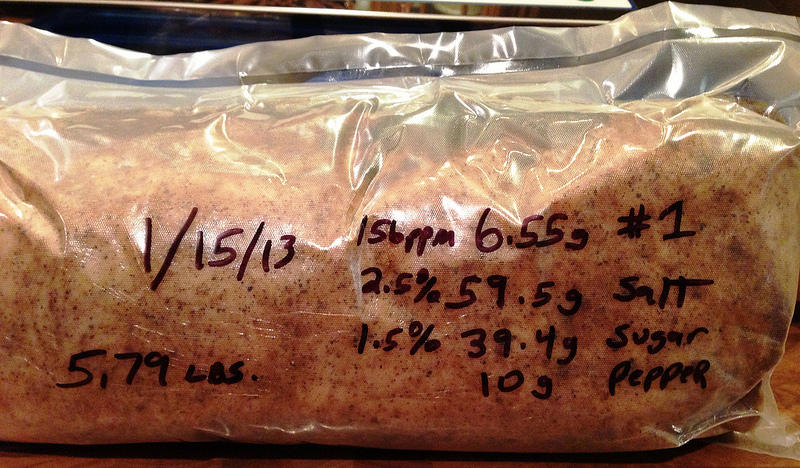 1/15/13
5.79 LBS.
156ppm 6.55g #1
2.5% 59.5g Salt
1.5% 39.4g Sugar
10g Pepper